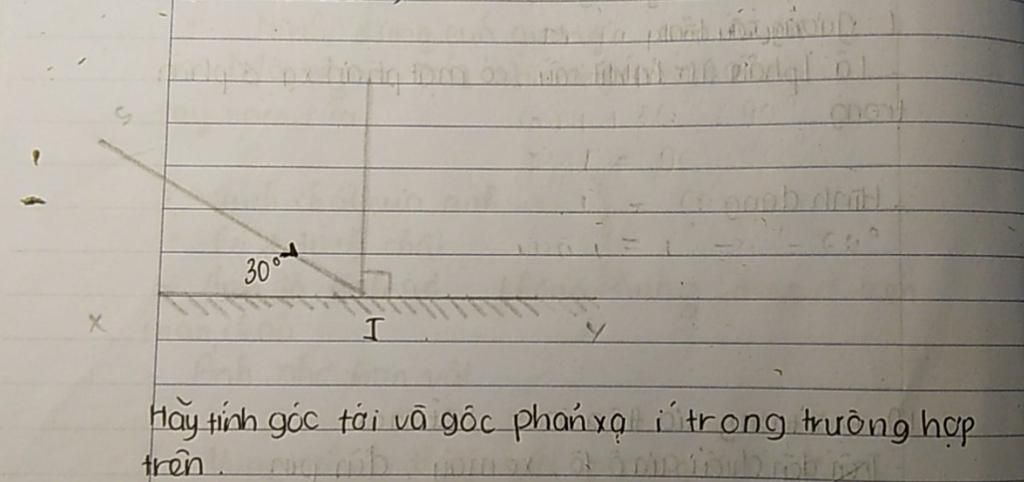 S
30°
X
I
y
Hãy tính góc tới và góc phản xạ i' trong trường hợp
trên.